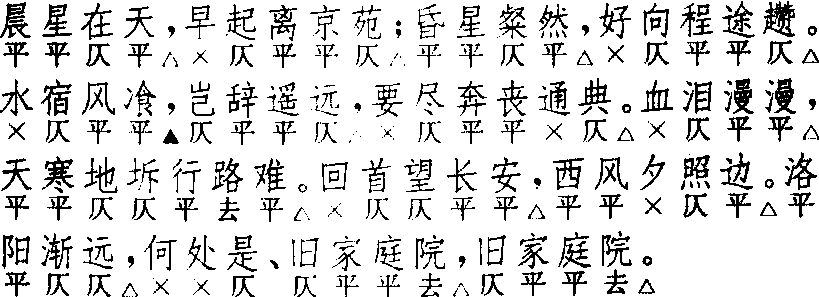 晨星在天，早起离京苑；昏星粲然，好向程途趱。
平平仄平△×仄平平仄△平平仄平△×仄平平仄△
水宿风飡，岂辞遥远，要尽奔丧通典。血泪漫漫，
×仄平平▲仄平平仄△×仄平平×仄△×仄平平△
天寒地坼行路难。回首望长安，西风夕照边。洛
平平仄仄平去平△×仄仄平平△平平×仄平△平
阳渐远，何处是、旧家庭院，旧家庭院。
平仄仄△××仄仄平平去△仄平平去△